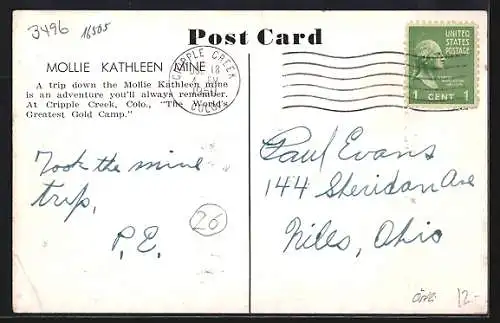 3496 16505
Post Card
MOLLIE KATHLEEN MINE
A trip down the Mollie Kathleen mine
is an adventure you'll always remember.
At Cripple Creek, Colo., "The World's
Greatest Gold Camp."
CRIPPLE CREEK
18
PM
COLO.
UNITED
STATES
POSTAGE
1 CENT 1
Took the mine
trip,
P.E.
26
Paul Evans
144 Sheridan Ave
Niles, Ohio
12.-